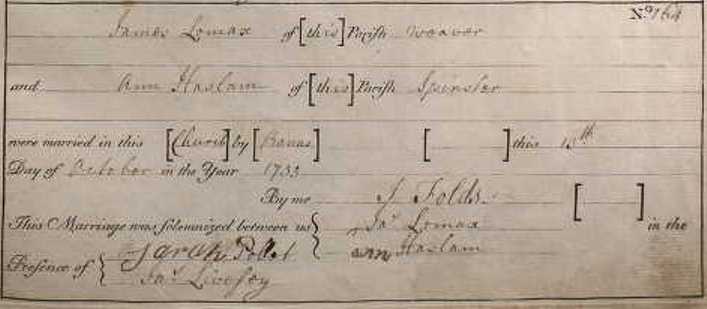 No 164
James Lomax of [this] Parish weaver
and Ann Haslam of [this] Parish Spinster
were married in this [Church] by [Banns] [ ] this 15th
Day of October in the Year
By me J Folds [ ]
This Marriage was solemnized between us { Jas Lomax in the
Presence of { Sarah Pollet { ann Haslam
Jas Livesey